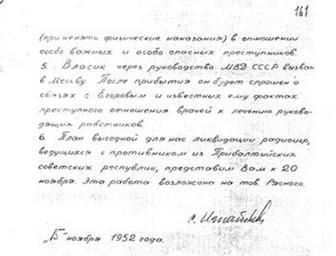 161
(применять физические наказания) в отношении
особо важных и особо опасных преступников.
5. Власик через руководства МВД СССР вызван
в Москву. После прибытия он будет спрошен о
связях с Егоровым и известных ему фактах
преступного отношения врачей к лечению руково-
дящих работников.
6. План выгодной для нас ликвидации радиоигр,
ведущихся с противником из Прибалтийских
советских республик, представим Вам к 20
ноября. Эта работа возложена на тов. Рясного.
с. Игнатьев
"15" ноября 1952 года.